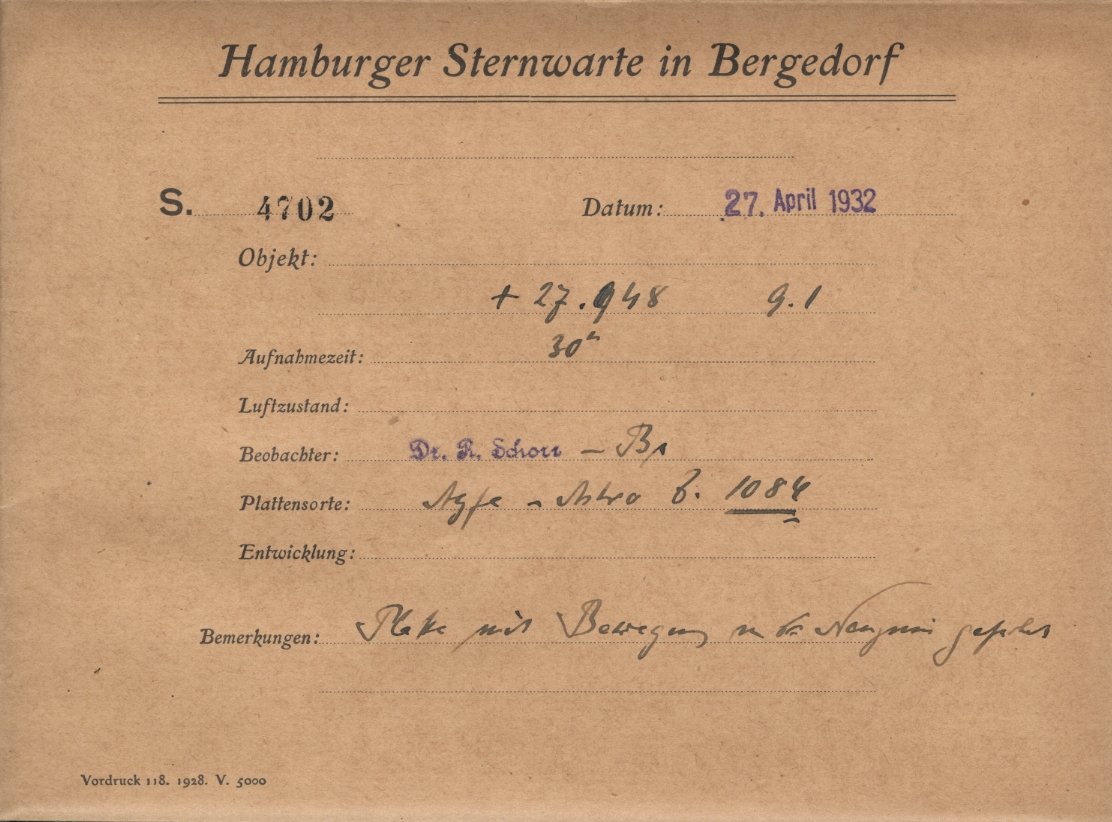 Hamburger Sternwarte in Bergedorf
S. 4702 Datum: 27. April 1932
Objekt:
+ 27.948 9.1
Aufnahmezeit: 30ᵐ
Luftzustand:
Beobachter: Dr. R. Schorr – Br
Plattensorte: Agfa – Astro 6. 1084
Entwicklung:
Bemerkungen: Platte mit Bewegung geführt
Vordruck 118. 1928. V. 5000